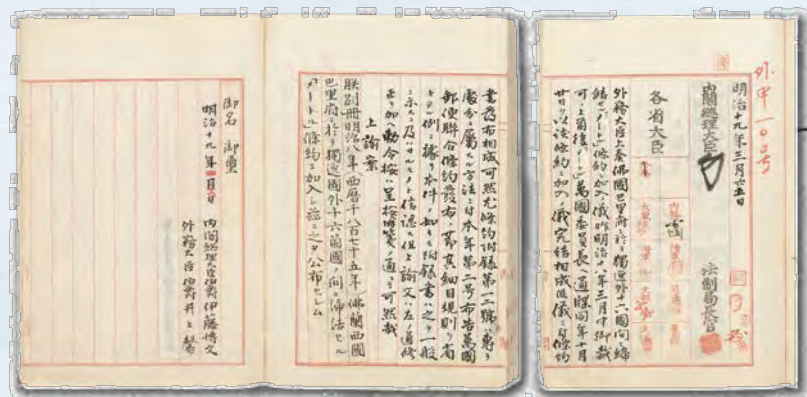 外甲一〇五号
明治十九年三月廿五日
内閣総理大臣
法制局長官
各省大臣
外務大臣上奏佛國巴里府ニ於テ獨逸外十六箇國間締
結セシメートル條約ヘ加入ノ儀昨明治十八年三月中御裁
可ノ上爾後メートル萬國委員長ヘ通牒同年十月
廿日ヲ以該條約ニ加入ノ儀完結相成候儀ニ付條約
書公布相成可然尤條約附録第一二號ノ等ノ
處分ニ屬スル方法ニ付本年第二号布告萬國
郵便聯合條約發布ノ第其細目規則ヲ省
キタル例ニ據リ本件ノ如キモ附録書ハ之ヲ一般
ニ示スニ及ハサルモノト信認ス但上諭文ハ左ノ通修
正ヲ加ヘ勅令按ハ呈按附箋ノ通ニテ可然哉
上諭案
朕別冊明治八年(西暦千八百七十五年)佛蘭西國
巴里府ニ於テ獨逸國外十六箇國ノ間ニ締結セル
メートル條約ニ加入シ茲ニ之ヲ公布セシム
御名 御璽
明治十九年四月
内閣総理大臣伯爵伊藤博文
外務大臣伯爵井上馨